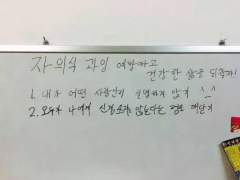 자의식 과잉 예방하고
건강한 삶을 되찾자!
1. 내가 어떤 사람인지 설명하지 않기 ^_^
2. 모두가 나에게 신경쓰지 않는다는 점을 깨닫기